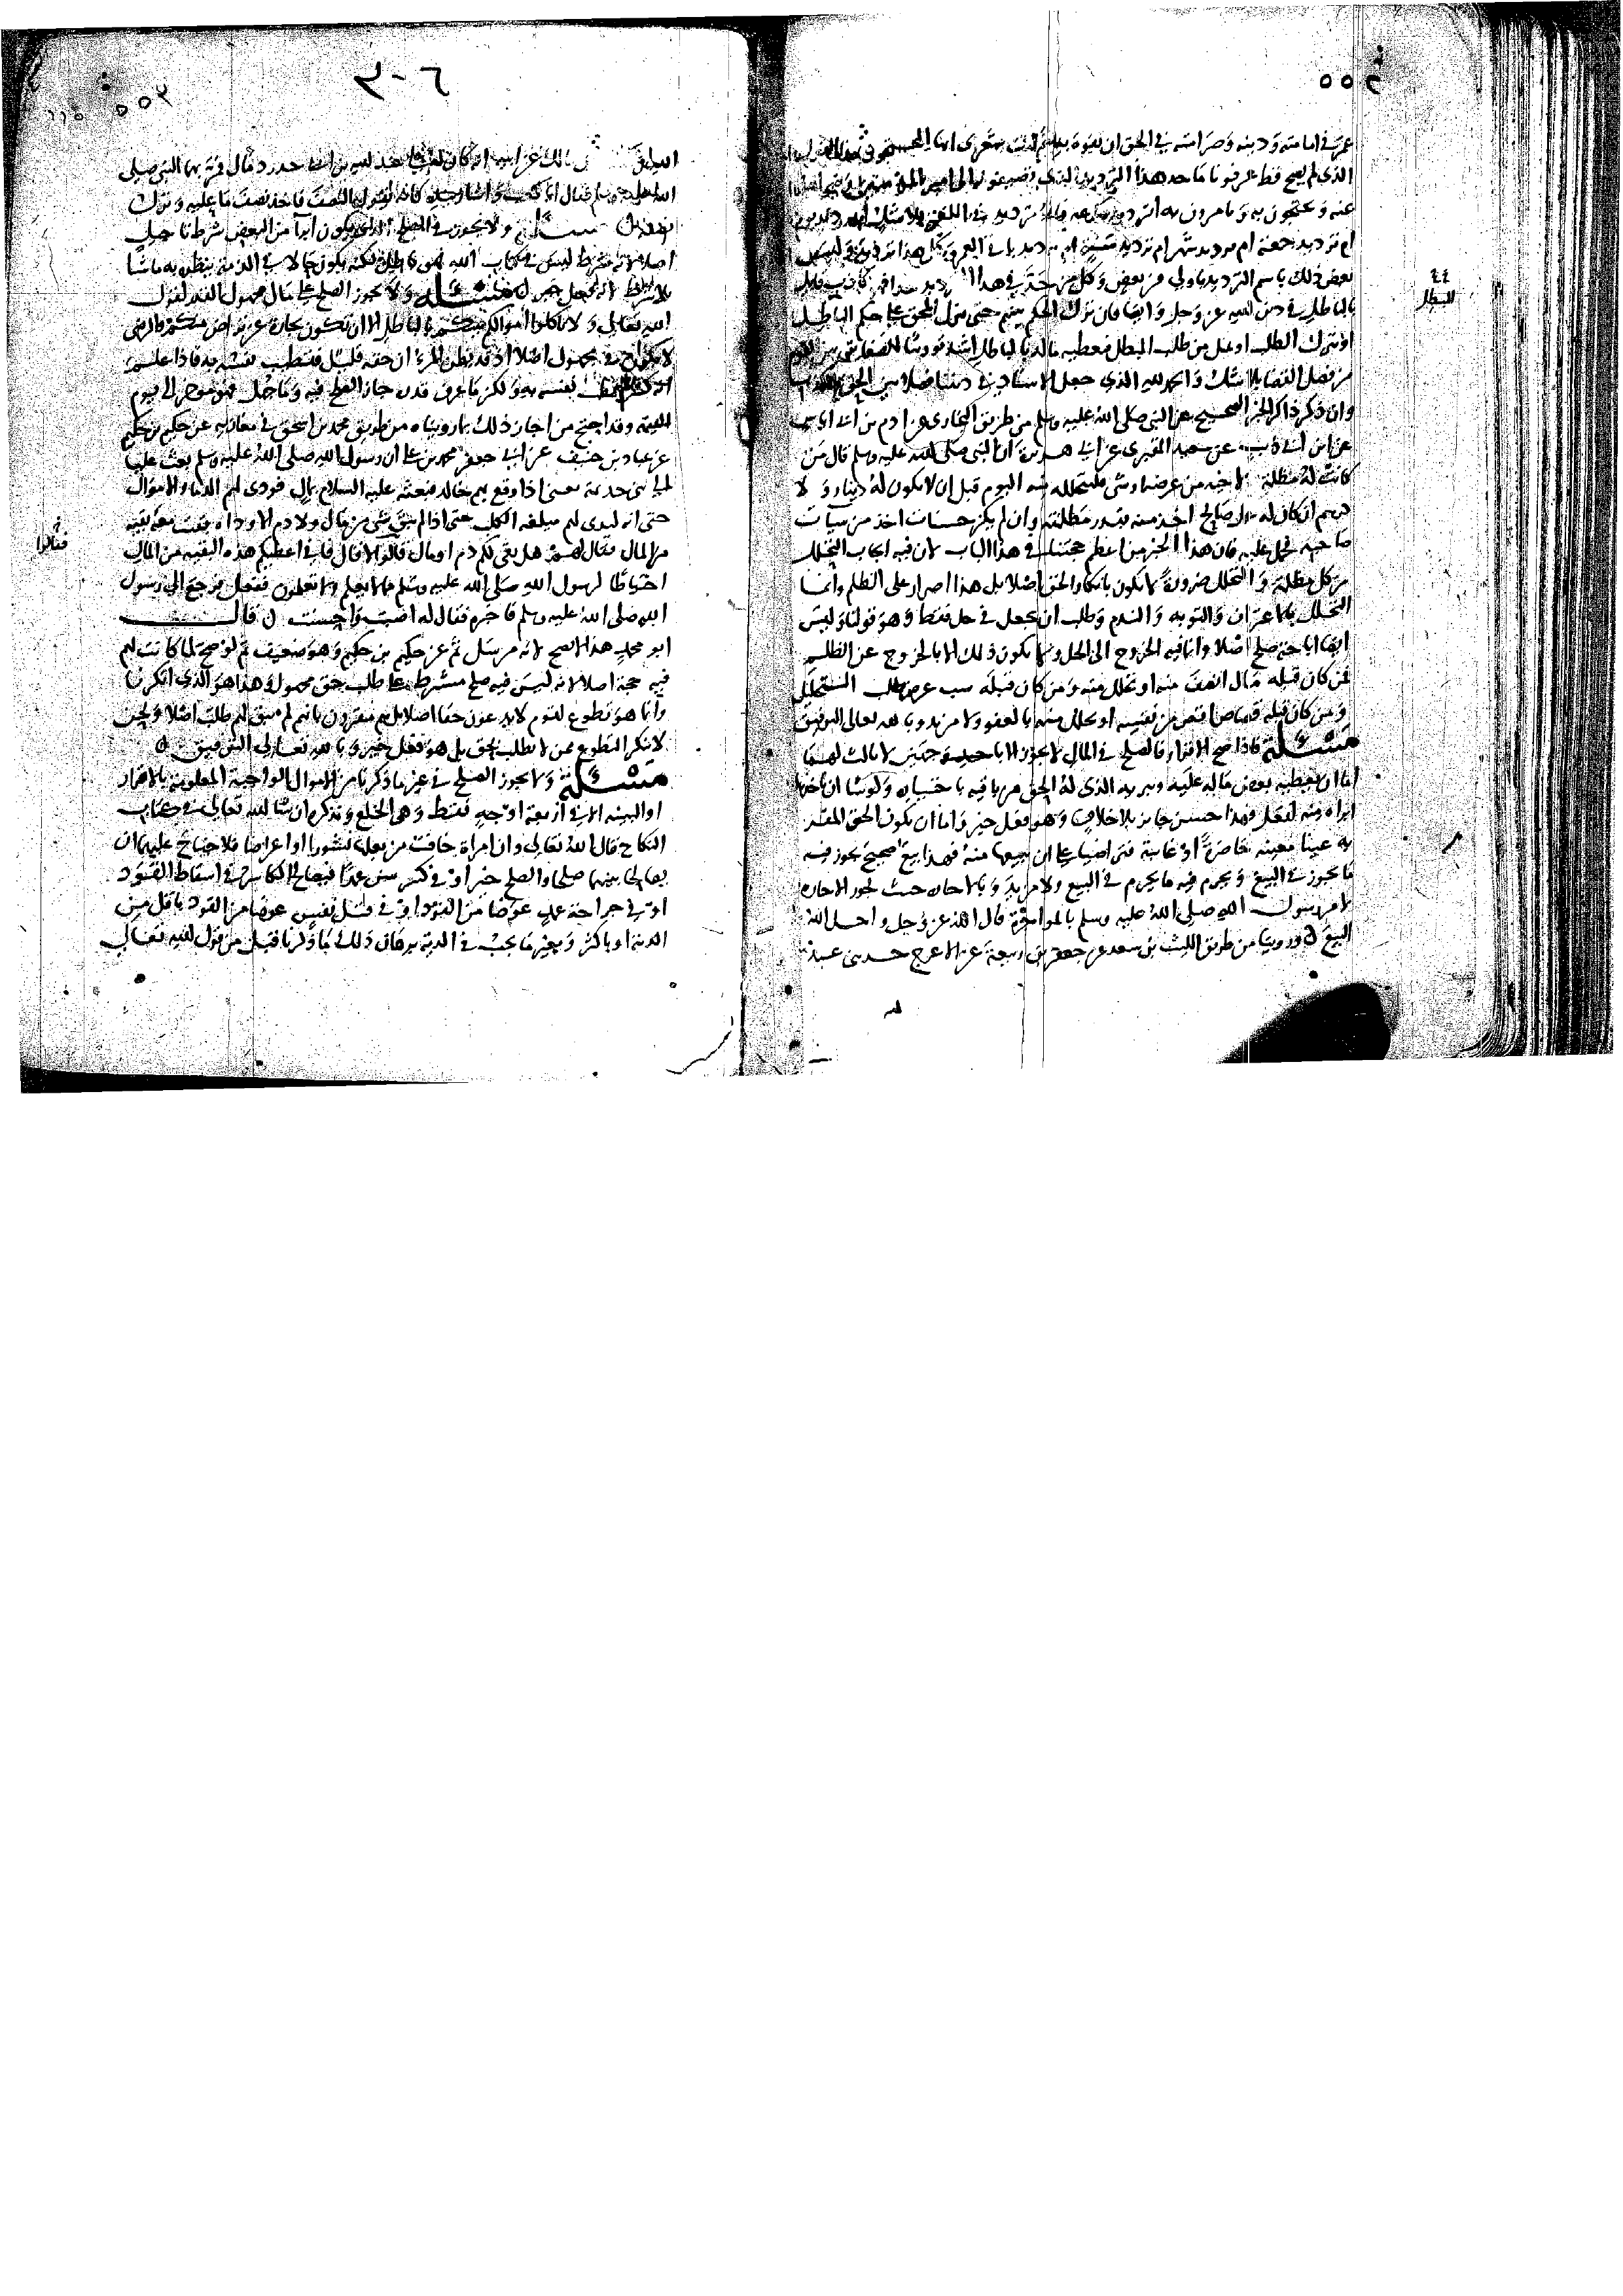 عمر في امامته ودينه وصرامته في الحق ان يفوه
الذي لم يصح قط عرفونا ما حد هذا الترديد الذي
عنه وتحتجون به وتامرون به اترديد ساعة
ام ترديد جمعة ام ترديد شهر ام ترديد سنة ام ترديد باقي العمر وكل هذا
بعض ذلك باسم الترديد باولى من بعض وكل من حد في هذا
بالباطل في دين الله عز وجل وايضا فان ترك الحكم بينهم حتى ينزل المحق على حكم الباطل
او يترك الطلب او يمل من طلب المبطل فيعطيه ماله بالباطل
من فصل القضا بلا شك والحمد لله الذي جعل الاسناد في ديننا فصلا بين الحق
وان ذكر ذاكر الخبر الصحيح عن النبي صلى الله عليه وسلم من طريق البخاري عن ادم بن ابي اياس
عن ابن ابي ذيب عن سعيد المقبري عن ابي هريرة ان النبي صلى الله عليه وسلم قال من
كانت له مظلمة لاخيه من عرضه او شي فليتحلله منه اليوم قبل ان لا يكون له دينار ولا
درهم ان كان له عمل صالح اخذ منه بقدر مظلمته وان لم يكن حسنات اخذ من سيات
صاحبه فحمل عليه فان هذا الخبر من اعظم حجتنا في هذا الباب لان فيه ايجاب التحلل
من كل مظلمة والتحلل ضرورة لا يكون بانكار الحق اصلا بل هذا اصرار على الظلم وانما
التحلل بالاعتراف والتوبه والندم وطلب ان يجعل في حل فقط وهو قولنا وليس
ايضا اباحة صلح اصلا وانما فيه الخروج الى الحل ولا يكون ذلك الا بالخروج عن الظلم
فمن كان قبله مال انصف منه او تحلل منه ومن كان قبله سب عرض طلب التحليل
ومن كان قبله قصاص اقتص من نفسه او تحلل منه بالعفو ولا مزيد وبالله تعالى التوفيق
مسئلة فاذا صح الاقرار فالصلح في المال لا يجوز الا باحد وجهين لا ثالث لهما
اما ان يعطيه بعض ماله عليه ويبريه الذي له الحق من باقيه باختياره ولو شا ان ياخذ
ابراه منه لفعل فهذا حسن جايز بلا خلاف وهو فعل خير واما ان يكون الحق المقر
به عينا معينه حاضرة او غايبة فتراضيا على ان يبيعها منه فهذا بيع صحيح يجوز فيه
ما يجوز في البيع ويحرم فيه ما يحرم في البيع ولا مزيد وبالاجارة حيث تجوز الاجارة
لامر رسول الله صلى الله عليه وسلم بالمواجرة قال الله عز وجل واحل الله
البيع وروينا من طريق الليث بن سعد عن جعفر بن ربيعة عن الاعرج حدثني عبد
الله بن كعب بن مالك عن ابيه انه كان له على عبد الله بن ابي حدرد مال فمر بهما النبي صلى
الله عليه وسلم فقال يا كعب واشار بيده كانه يقول النصف فاخذ نصف ما عليه وترك
نصفه مسئلة ولا يجوز في الصلح الذي يكون ابرا من البعض شرط تاجيل
اصلا لانه شرط ليس في كتاب الله فهو باطل لكنه يكون حالا في الذمة ينظره به ما شا
بلا شرط لانه فعل خير مسئلة ولا يجوز الصلح على مال مجهول القدر لقول
الله تعالى ولا تاكلوا اموالكم بينكم بالباطل الا ان تكون تجارة عن تراض منكم والرضى
لا يكون في مجهول اصلا اذ قد يظن المرء ان حقه قليل فتطيب نفسه به فاذا علم
انه كثير لم تطب نفسه به ولكن ما عرف قدره جاز الصلح فيه وما جهل فهو موخر الى يوم
القيمة وقد احتج من اجاز ذلك بما رويناه من طريق محمد بن اسحق في مغازيه عن حكيم بن حكيم
عن عباد بن حنيف عن ابي جعفر محمد بن علي ان رسول الله صلى الله عليه وسلم بعث عليا
الى بني جذيمة يعني اذ اوقع بهم خالد فبعثه عليه السلام بمال فودى لهم الدما والاموال
حتى انه ليدي لهم ميلغة الكلب حتى اذا لم يبق شي من مال ولا دم الا وداه بقيت معه بقية
من المال فقال لهم هل بقي لكم دم او مال قالوا لا قال فاني اعطيكم هذه البقية من المال
احتياطا لرسول الله صلى الله عليه وسلم مما لا يعلم ولا تعلمون ففعل ثم رجع الى رسول
الله صلى الله عليه وسلم فاخبره فقال له اصبت واحسنت قال
ابو محمد هذا لا يصح لانه مرسل ثم عن حكيم بن حكيم وهو ضعيف ثم لو صح لما كانت لهم
فيه حجة اصلا لانه ليس فيه صلح مشترط على طلب حق مجهول وهذا هو الذي انكرنا
وانما هو تطوع لقوم لا يدعون حقا اصلا بل هم مقرون بانهم لم يبق لهم طلب اصلا ونحن
لا ننكر التطوع ممن لا يطلب بحق بل هو فعل خير وبالله تعالى التوفيق
مسئلة ولا يجوز الصلح في غير ما ذكرنا من الاموال الواجبة المعلومة بالاقرار
او البينه الا في اربعة اوجه فقط وهي الخلع ونذكره ان شا الله تعالى في كتاب
النكاح قال الله تعالى وان امراة خافت من بعلها نشوزا او اعراضا فلا جناح عليهما ان
يصالحا بينهما صلحا والصلح خير او في كسر سن عمدا فيصالح الكاسر في اسقاط القود
او في جراحة عمد عوضا من القود او في قتل نفس عوضا من القود باقل من
الدية او باكثر وبغير ما يجب في الدية برهان ذلك ما ذكرنا قبل من قول الله تعالى
فقالوا